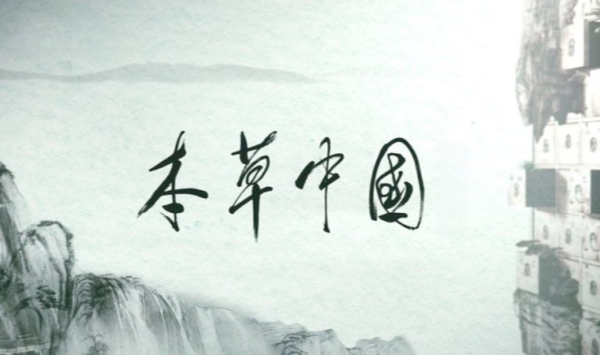 本草中國